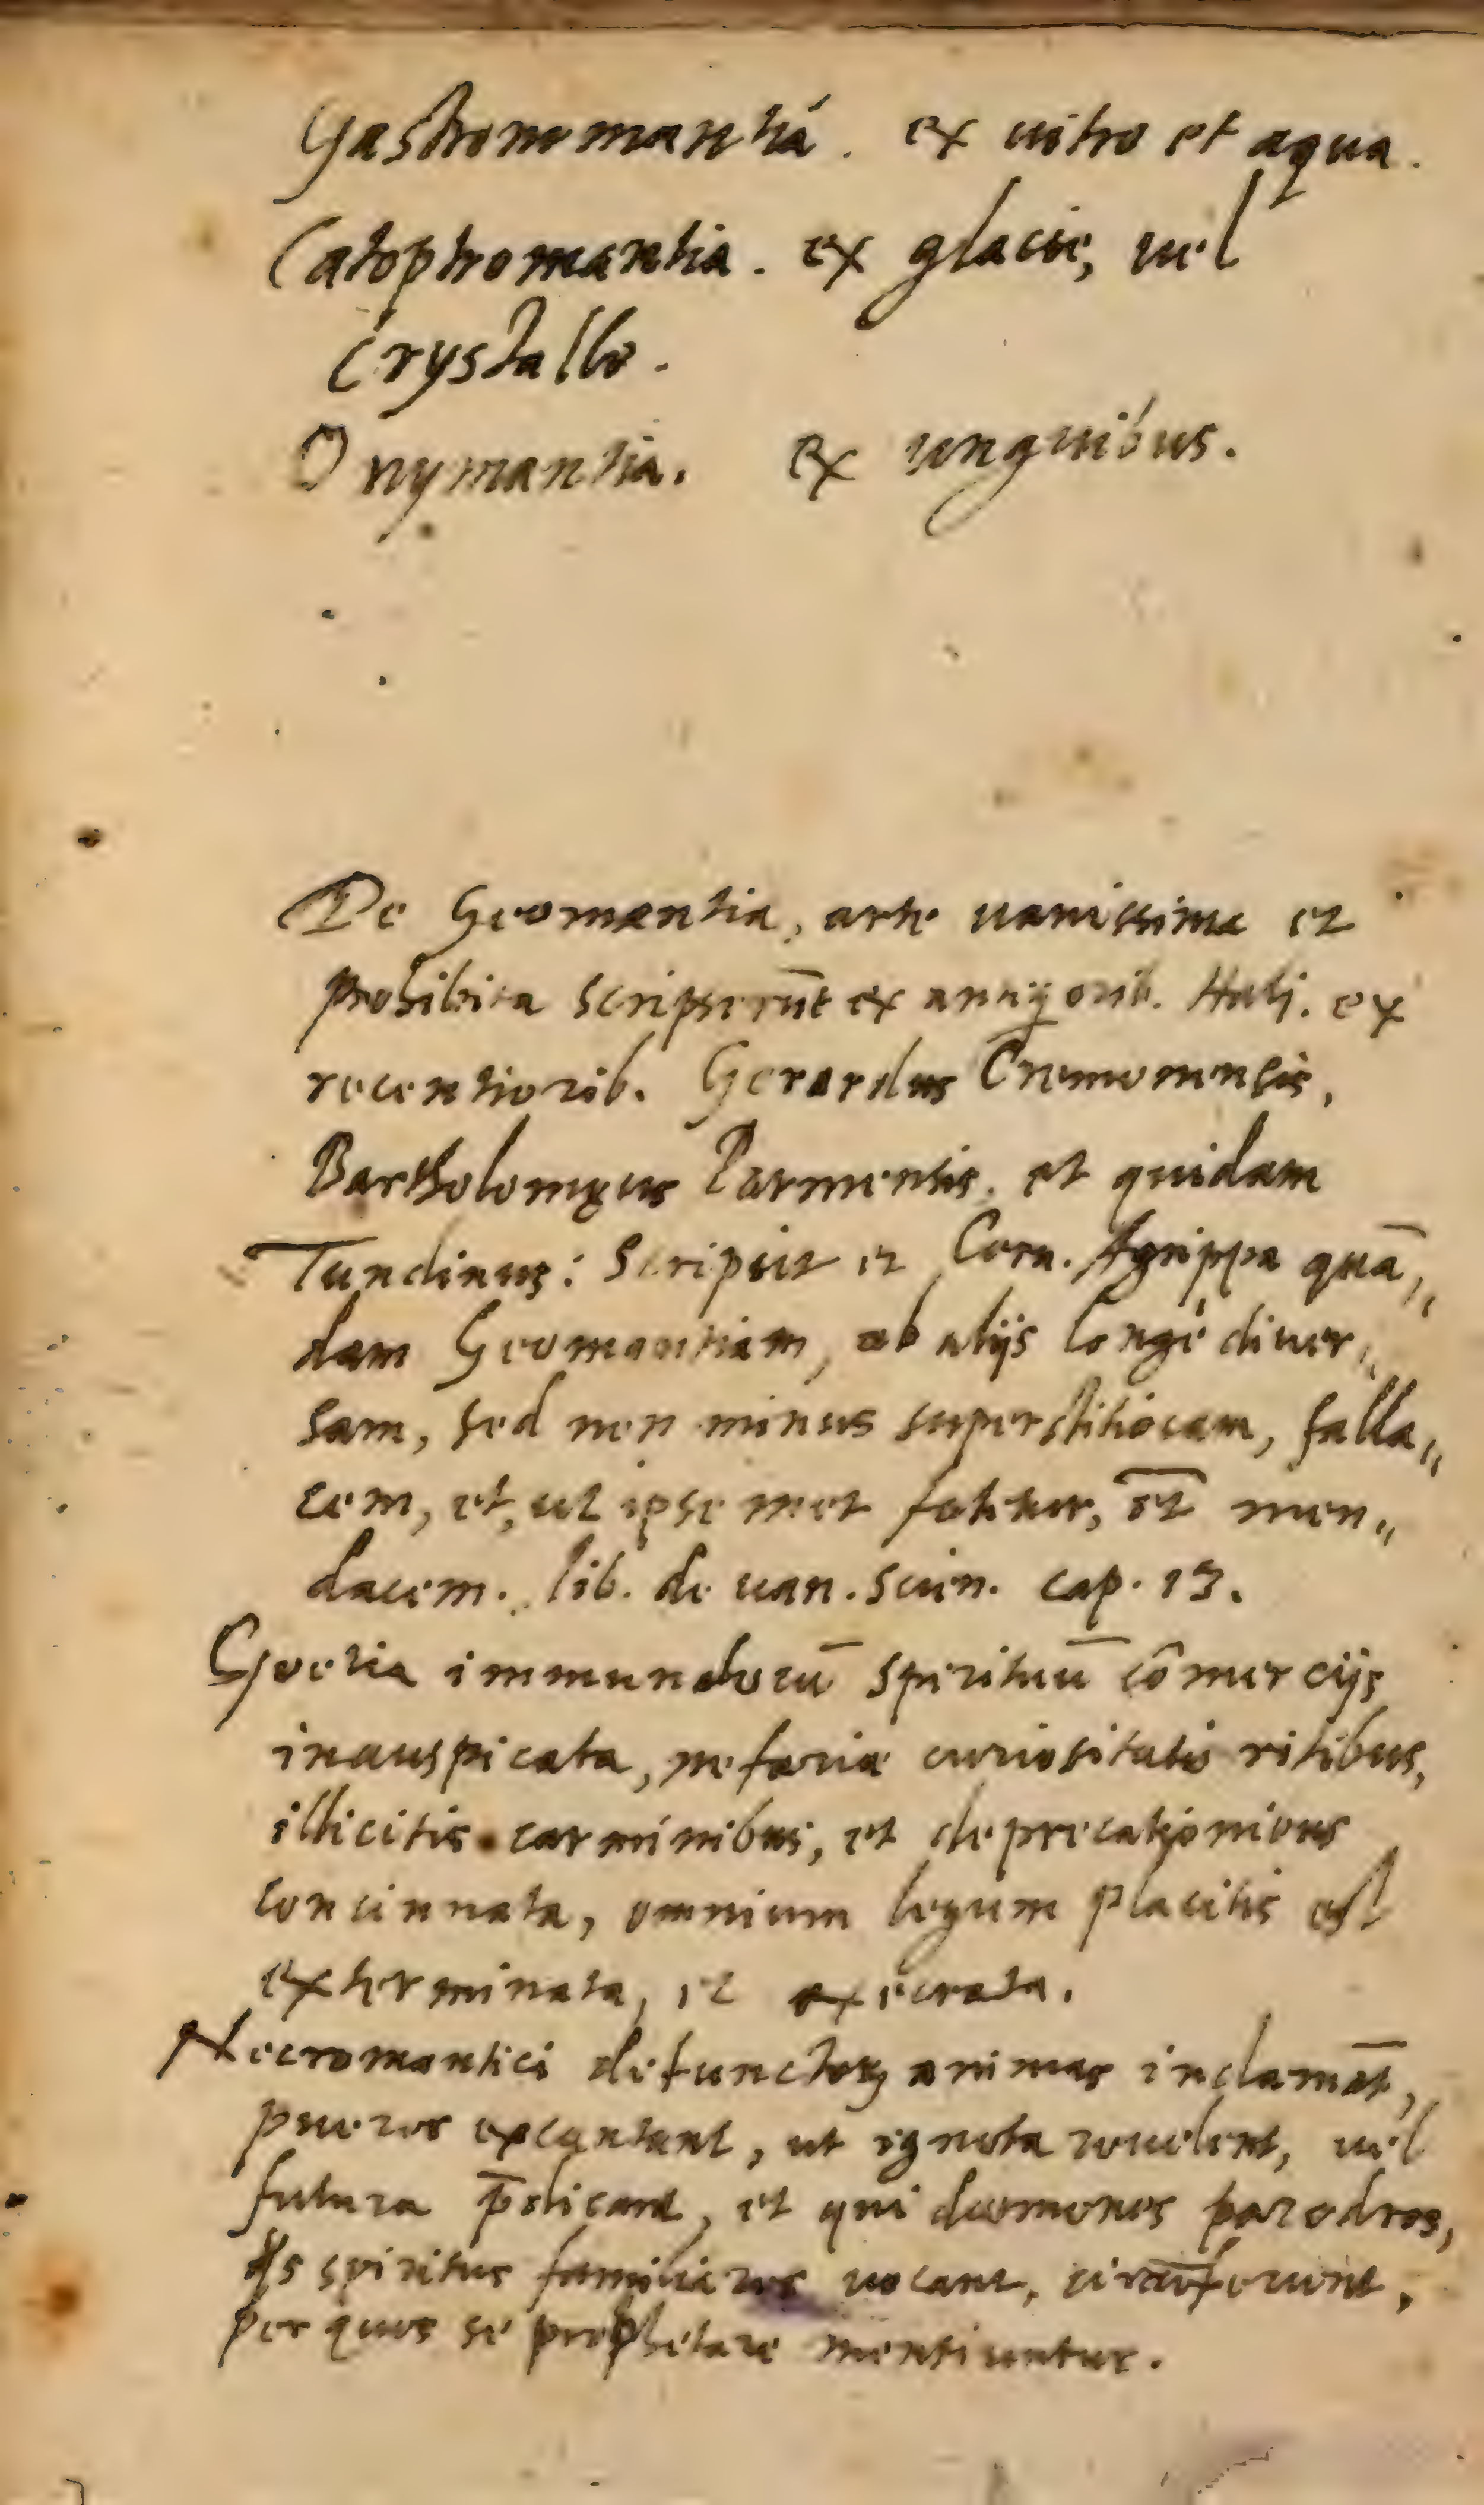 Gastrommantia. ex uitro et aqua.
Catoptromantia. ex glacie, uel
Crystallo.
Onymantia. ex unguibus.
De Geomantia, arte uanissima et
prohibita scripserūt ex antiq orib. Hali. ex
recentiorib. Gerardus Cremonensis,
Bartholomęus Parmensis. et quidam
Tundinus: Scripsit et Corn. Agrippa quā„
dam Geomantiam, ab alijs longè diuer„
sam, sed non minus superstitiosam, falla„
cem, et, ut ipse met fatetur, et men„
dacem. lib. de uan. scien. cap. 13.
Goetia immundorū spirituū cōmercijs
inauspicata, nefariæ curiositatis ritibus,
illicitis carminibus, et deprecationibus
concinnata, omnium legum placitis est
exterminata, et execrata.
Necromantici defunctoꝝ animas inclamāt,
pueros excantant, ut ignota reuelent, uel
futura p̄dicant, et qui dæmones paredros,
spiritus familiares uocant, circūferunt,
per quos se prophetare mentiuntur.